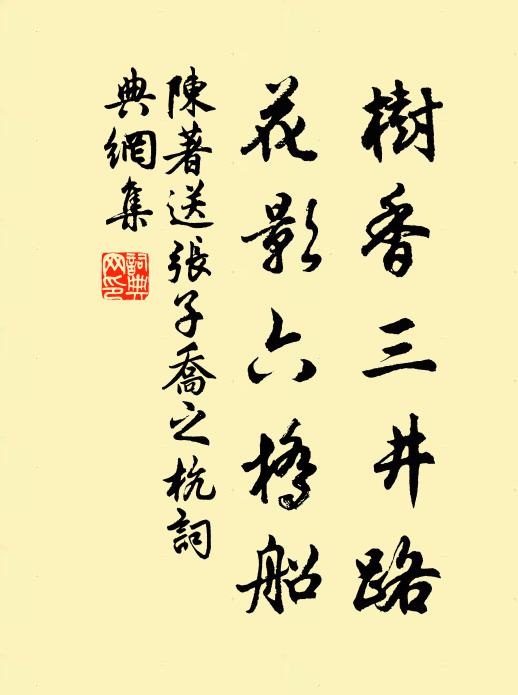 樹香三井路
花影六橋船
陳著送張子喬之杭詞
典網集
詞典網印